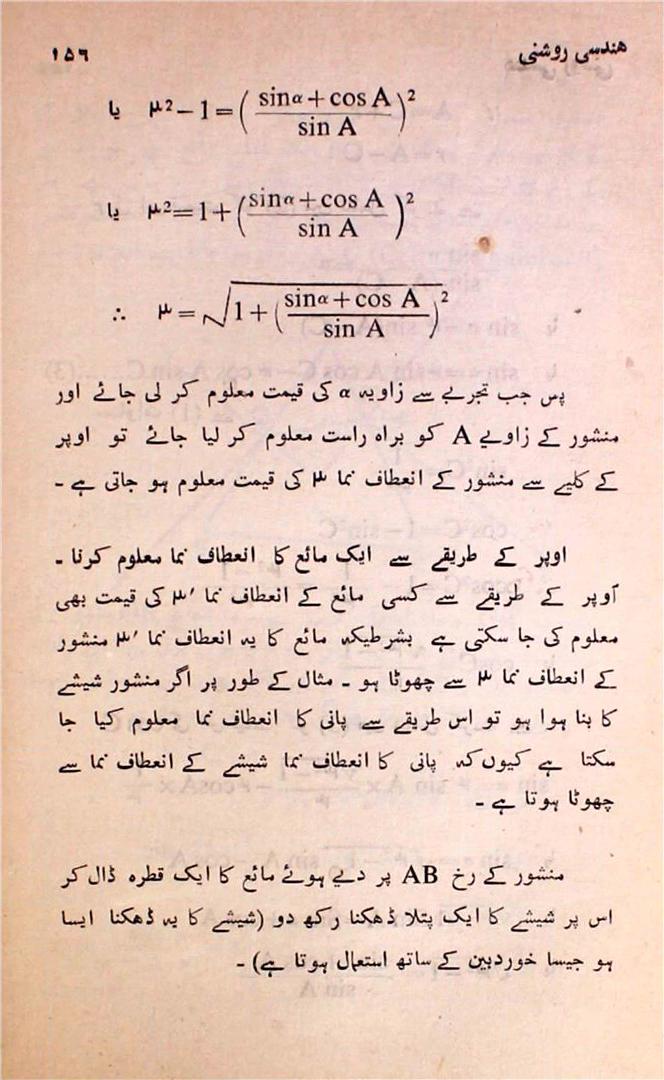 هندسی روشنی
۱۵٦
یا μ² − 1 = ( (sinα + cos A) / sin A )²
یا μ² = 1 + ( (sinα + cos A) / sin A )²
∴ μ = √(1 + ( (sinα + cos A) / sin A )²)
پس جب تجربے سے زاویہ α کی قیمت معلوم کر لی جائے اور
منشور کے زاویے A کو براہ راست معلوم کر لیا جائے تو اوپر
کے کلیے سے منشور کے انعطاف نما μ کی قیمت معلوم ہو جاتی ہے ۔
اوپر کے طریقے سے ایک مائع کا انعطاف نما معلوم کرنا ۔
اُوپر کے طریقے سے کسی مائع کے انعطاف نما μ′ کی قیمت بھی
معلوم کی جا سکتی ہے بشرطیکہ مائع کا یہ انعطاف نما μ′ منشور
کے انعطاف نما μ سے چھوٹا ہو ۔ مثال کے طور پر اگر منشور شیشے
کا بنا ہوا ہو تو اس طریقے سے پانی کا انعطاف نما معلوم کیا جا
سکتا ہے کیوں کہ پانی کا انعطاف نما شیشے کے انعطاف نما سے
چھوٹا ہوتا ہے ۔
منشور کے رخ AB پر دیے ہوئے مائع کا ایک قطرہ ڈال کر
اس پر شیشے کا ایک پتلا ڈھکنا رکھ دو (شیشے کا یہ ڈھکنا ایسا
ہو جیسا خوردبین کے ساتھ استعمال ہوتا ہے) ۔